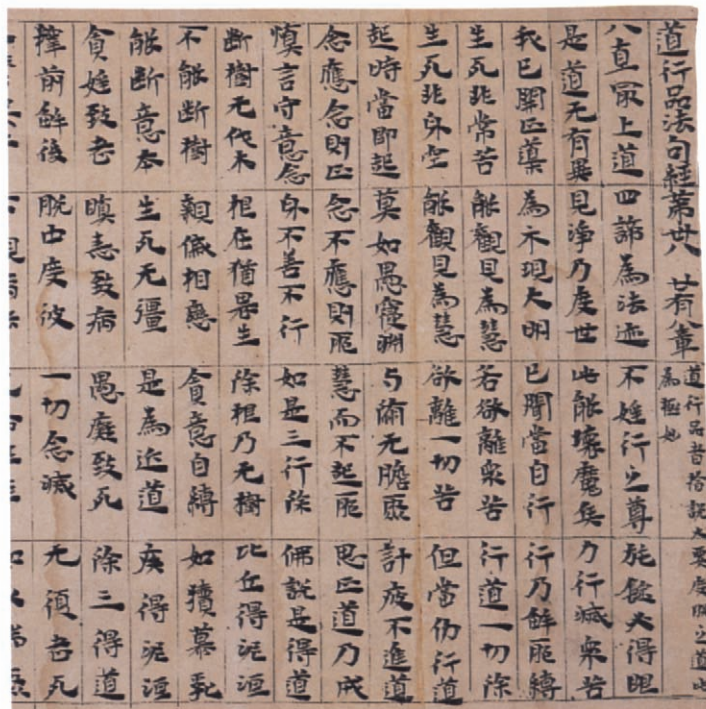 道行品法句經苐廿八 廿有八章 道行品者指說大要度脫之道此為極妙
八直最上道 四諦為法迹 不婬行之尊 施鐙必得眼
是道无有異 見淨乃度世 此能壞魔兵 力行滅衆苦
我已開正道 為示現大明 已聞當自行 行乃解邪縛
生死非常苦 能觀見為慧 若欲離衆苦 行道一切除
生死非身空 能觀見為慧 欲離一切苦 但當仂行道
起時當即起 莫如愚寢淵 与墮无瞻聚 計疲不進道
念應念則正 念不應則邪 慧而不起邪 思正道乃成
慎言守意念 身不善不行 如是三行除 佛說是得道
断樹无伐本 根在猶復生 除根乃无樹 比丘得泥洹
不能断樹 親戚相戀 貪意自縛 如犢慕乳
能断意本 生死无彊 是為近道 疾得泥洹
貪婬致老 瞋恚致病 愚癡致死 除三得道
釋前解後 脫中度彼 一切念滅 无復老死